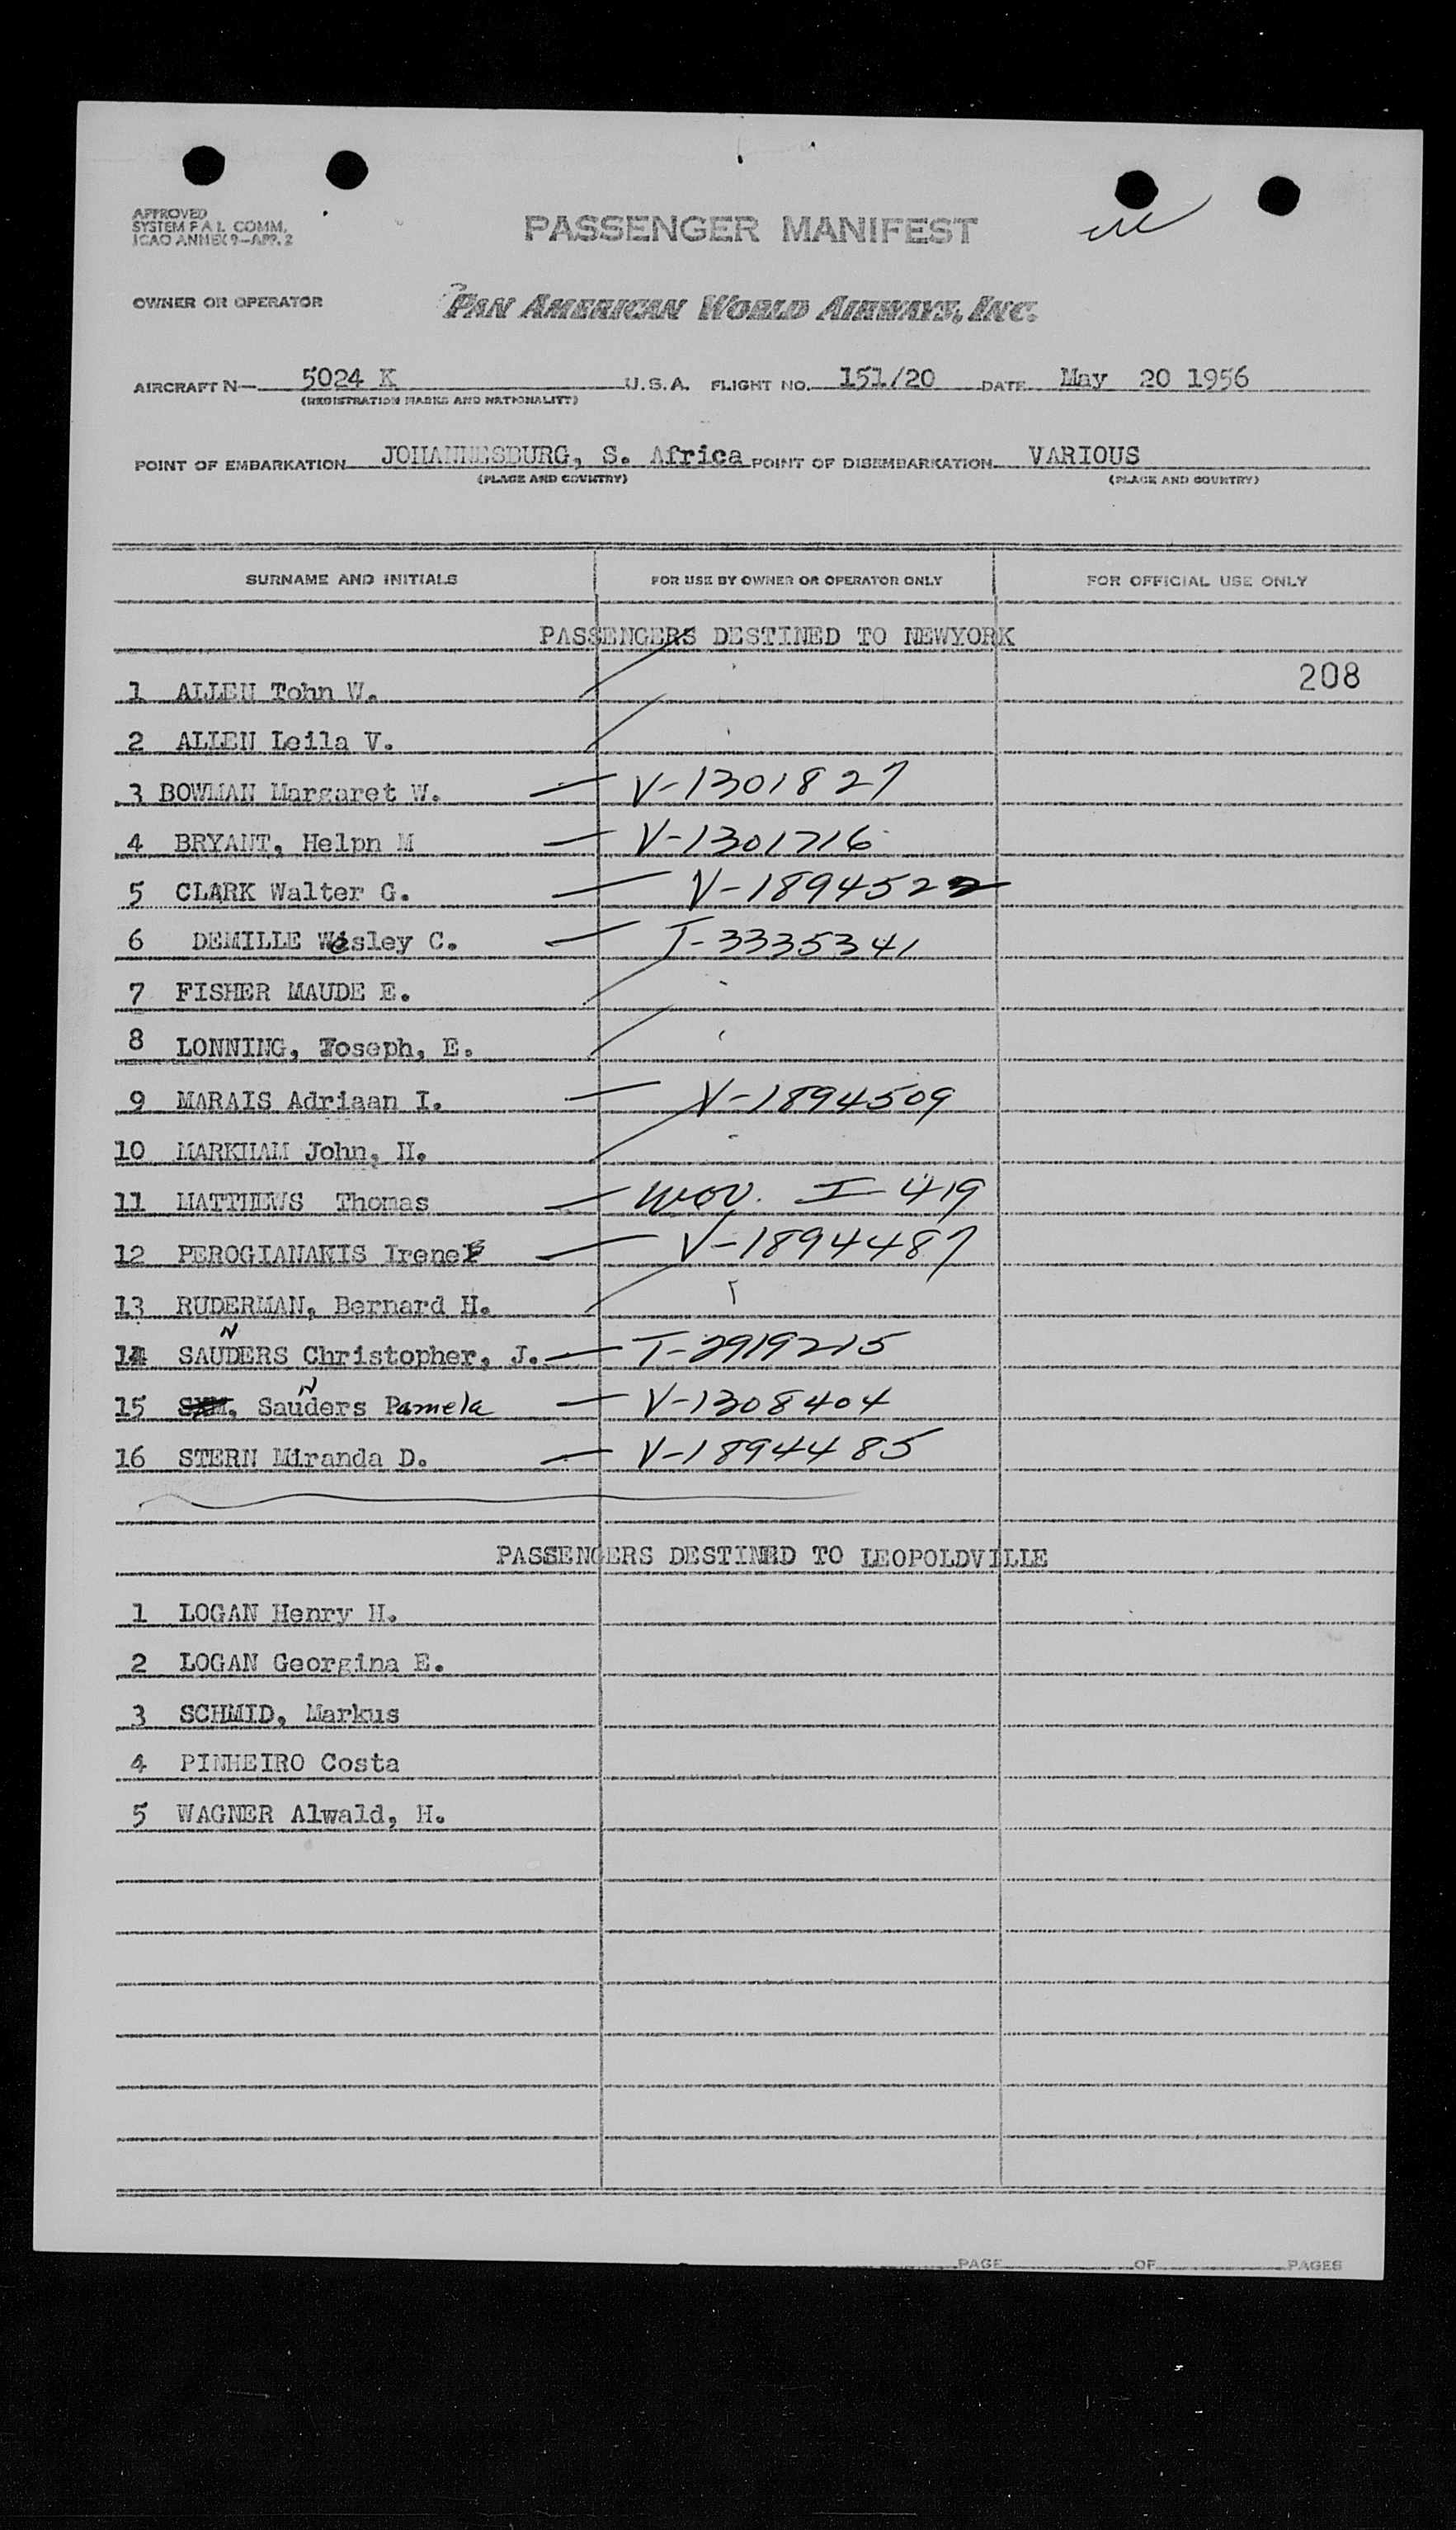 APPROVED
SYSTEM F A L COMM.
ICAO ANNEX 9—APP. 2
PASSENGER MANIFEST
OWNER OR OPERATOR PAN AMERICAN WORLD AIRWAYS, INC.
AIRCRAFT N— 5024 K U.S.A. FLIGHT NO. 151/20 DATE May 20 1956
(REGISTRATION MARKS AND NATIONALITY)
POINT OF EMBARKATION JOHANNESBURG, S. Africa POINT OF DISEMBARKATION VARIOUS
(PLACE AND COUNTRY) (PLACE AND COUNTRY)
SURNAME AND INITIALS FOR USE BY OWNER OR OPERATOR ONLY FOR OFFICIAL USE ONLY
PASSENGERS DESTINED TO NEWYORK
208
1 ALLEN Tohn W.
2 ALLEN Leila V.
3 BOWMAN Margaret W. — V-1301827
4 BRYANT, Helpn M — V-1301716
5 CLARK Walter G. — V-1894522
6 DEMILLE Wesley C. — T-3335341
7 FISHER MAUDE E.
8 LONNING, Joseph, E.
9 MARAIS Adriaan I. — V-1894509
10 MARKHAM John, H.
11 MATTHEWS Thomas — I-419
12 PEROGIANAKIS Irene — V-1894487
13 RUDERMAN, Bernard H.
14 SAUNDERS Christopher, J. — T-2919215
15 Saunders Pamela — V-1308404
16 STERN Miranda D. — V-1894485
PASSENGERS DESTINED TO LEOPOLDVILLE
1 LOGAN Henry H.
2 LOGAN Georgina E.
3 SCHMID, Markus
4 PINHEIRO Costa
5 WAGNER Alwald, H.
PAGE OF PAGES